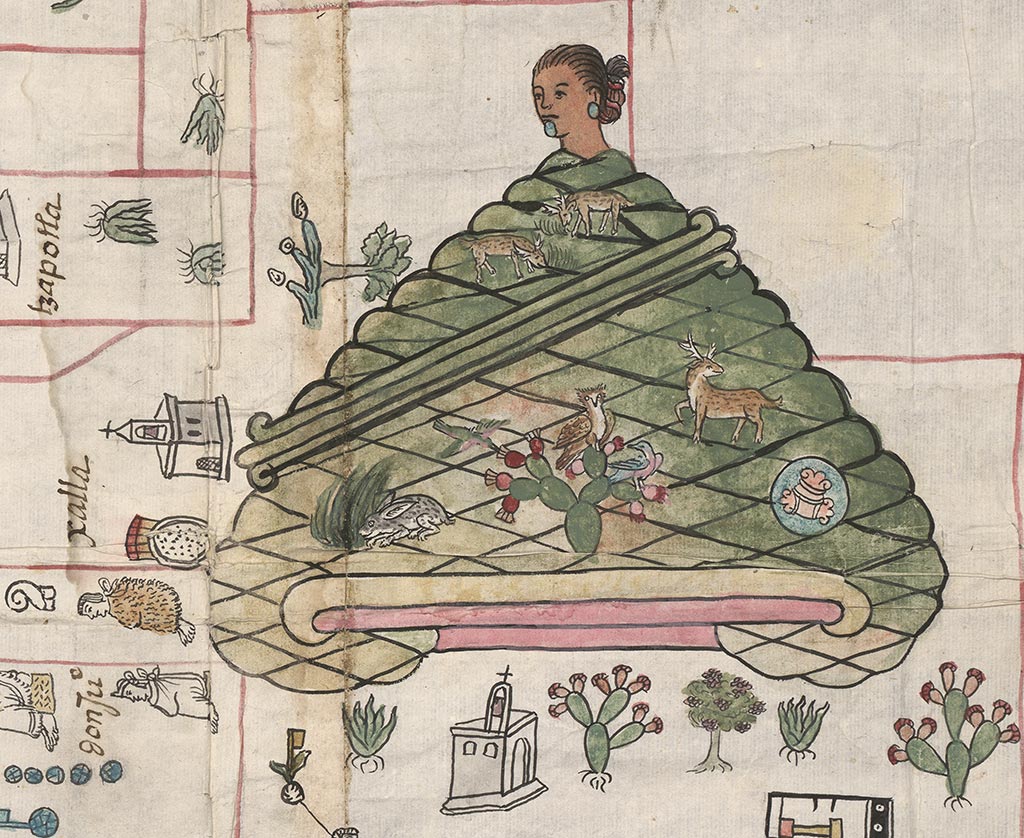 tzapotla
xalla
don Juº